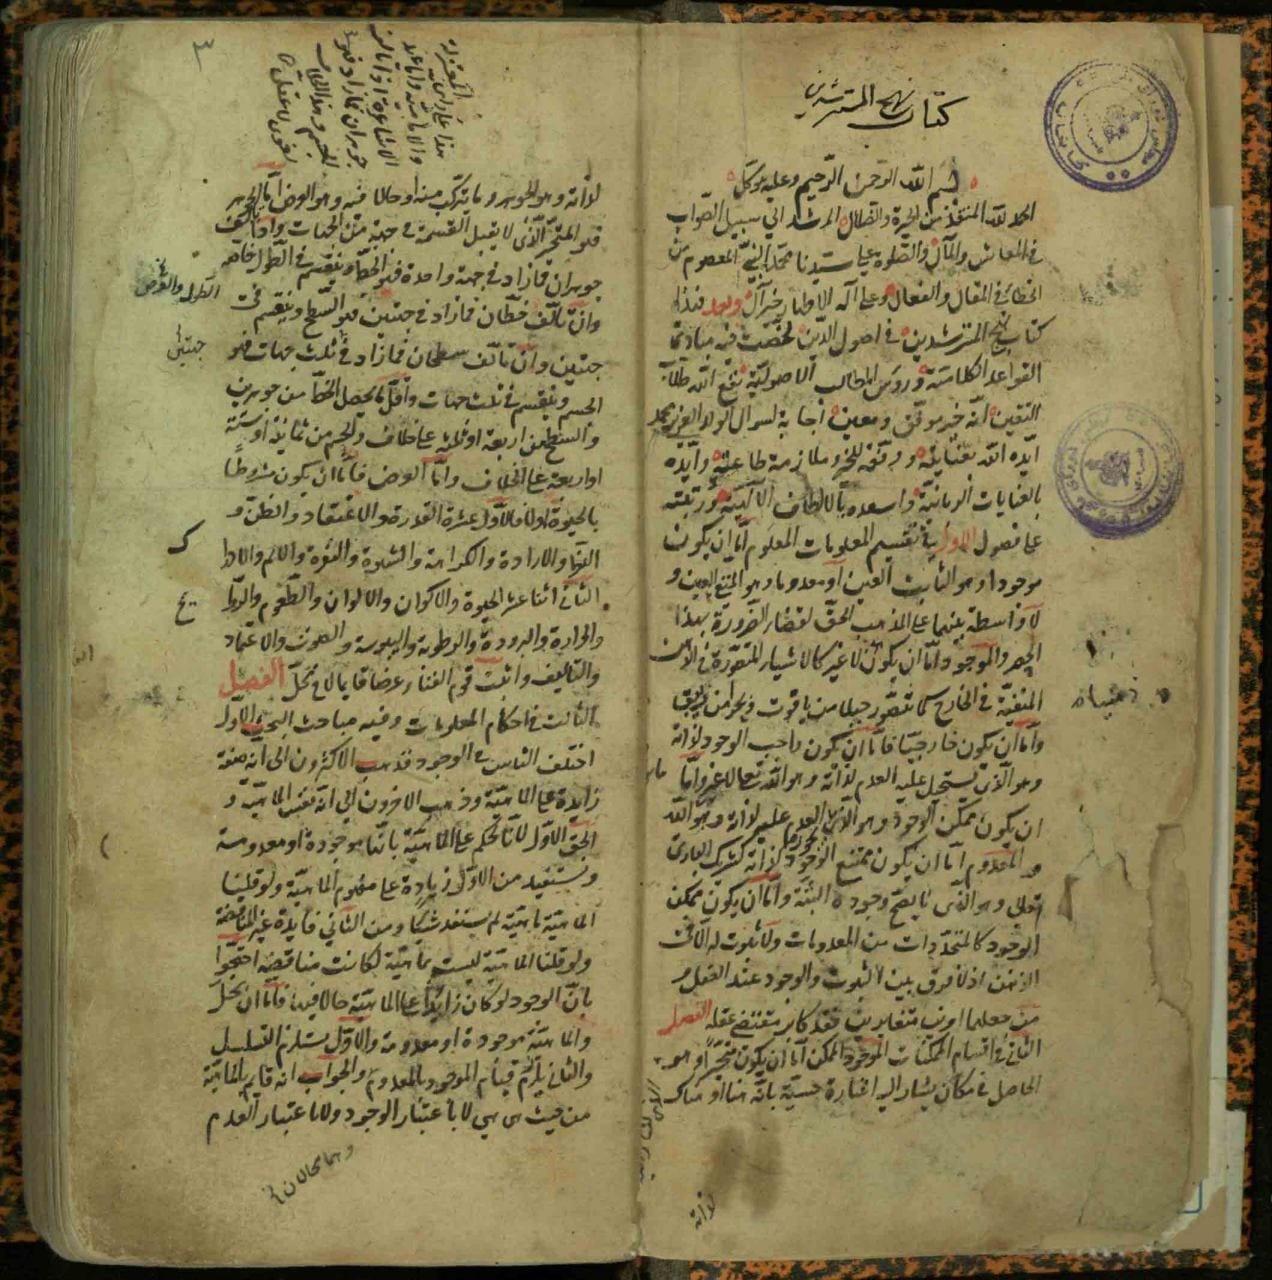 كتاب نهج المسترشدين
بسم الله الرحمن الرحيم وعليه توكلي
الحمد لله المنقذ من الحيرة والضلال المرشد الى سبيل الصواب
في المعاش والمآل والصلوة على سيدنا محمد النبي المعصوم من
الخطائ في المقال والفعال وعلى آله الاطهار خير آل وبعد فهذا
كتاب نهج المسترشدين في اصول الدين لخصت فيه مبادئ
القواعد الكلامية ورؤس المطالب الاصولية نفع الله طلاب
اليقين انه خير موفق ومعين اجابة لسوال الولد العزيز محمد
ايده الله بعنايته ووفقه للخير وملازمة طاعته وايده
بالعنايات الربانية واسعده بالالطاف الالهية ورتبته
على فصول الاول في تقسيم المعلومات المعلوم اما ان يكون
موجودا وهو الثابت العين او معدوما وهو المنفي العين و
لا واسطة بينهما على المذهب الحق لقضاء الضرورة بهذا
الحصر والموجود اما ان يكون ذهنيا لا غير كالاشياء المتصورة في الذهن
المنفية في الخارج كما نتصور جبلا من ياقوت وبحرا من زيبق
واما ان يكون خارجيا فاما ان يكون واجب الوجود لذاته
وهو الذي يستحيل عليه العدم لذاته وهو الله تعالى لا غير واما
ان يكون ممكن الوجود وهو الذي يجوز العدم عليه لذاته وهو ما عدا الله
والمعدوم اما ان يكون ممتنع الوجود لذاته كشريك الباري
تعالى وهو الذي لا يصح وجوده البتة واما ان يكون ممكن
الوجود كالمتجددات من المعدومات ولا ثبوت له الا في
الذهن اذ لا فرق بين الثبوت والوجود عند العقل و
من جعلهما امرين متغايرين فقد كابر مقتضى عقله الفصل
الثاني في اقسام الممكنات الموجود الممكن اما ان يكون متحيزا وهو
الحاصل في مكان يشار اليه اشارة حسية بانه هنا او هناك
لذاته
لذاته وهو الجوهر وما يتركب منه او حالا فيه وهو العرض اما الجوهر
فهو المتحيز الذي لا يقبل القسمة في جهة من الجهات واذا تالف
جوهران فما زاد في جهة واحدة فهو الخط وينقسم في الطول خاصة
وان تالف خطان فما زاد في جهتين فهو السطح وينقسم في
جهتين وان تالف سطحان فما زاد في ثلث جهات فهو
الجسم وينقسم في ثلث جهات واقل ما يحصل الخط من جوهرين
والسطح من اربعة او ثلثة على خلاف والجسم من ثمانية او ستة
او اربعة على الخلاف واما العرض فاما ان يكون مشروطا
بالحيوة اولا فالاول عشرة القدرة والاعتقاد والظن و
النظر والارادة والكراهة والشهوة والنفرة والالم والادراك
الثاني اثنا عشر الحيوة والاكوان والالوان والطعوم والروائح
والحرارة والبرودة والرطوبة واليبوسة والصوت والاعتماد
والتاليف واثبت قوم الفناء عرضا قايما لا في محل الفصل
الثالث في احكام المعلومات وفيه مباحث البحث الاول
اختلف الناس في الوجود فذهب الاكثرون الى انه صفة
زايدة على الماهية وذهب الاخرون الى انه نفس الماهية و
الحق الاول لانا نحكم على الماهية بانها موجودة او معدومة
ونستفيد من الاول زيادة على مفهوم الماهية ولو قلنا
الماهية ماهية لم نستفد شيئا ومن الثاني فايدة غير المناقضة
ولو قلنا الماهية ليست ماهية لكانت مناقضة احتجوا
بان الوجود لو كان زايدا على الماهية حالا فيها فاما ان يحل
والماهية موجودة او معدومة والاول يستلزم التسلسل
والثاني يلزم قيام الموجود بالمعدوم والجواب انه قايم بالماهية
من حيث هي هي لا باعتبار الوجود ولا باعتبار العدم
وهما محالان
الطول والعرض
جهتين